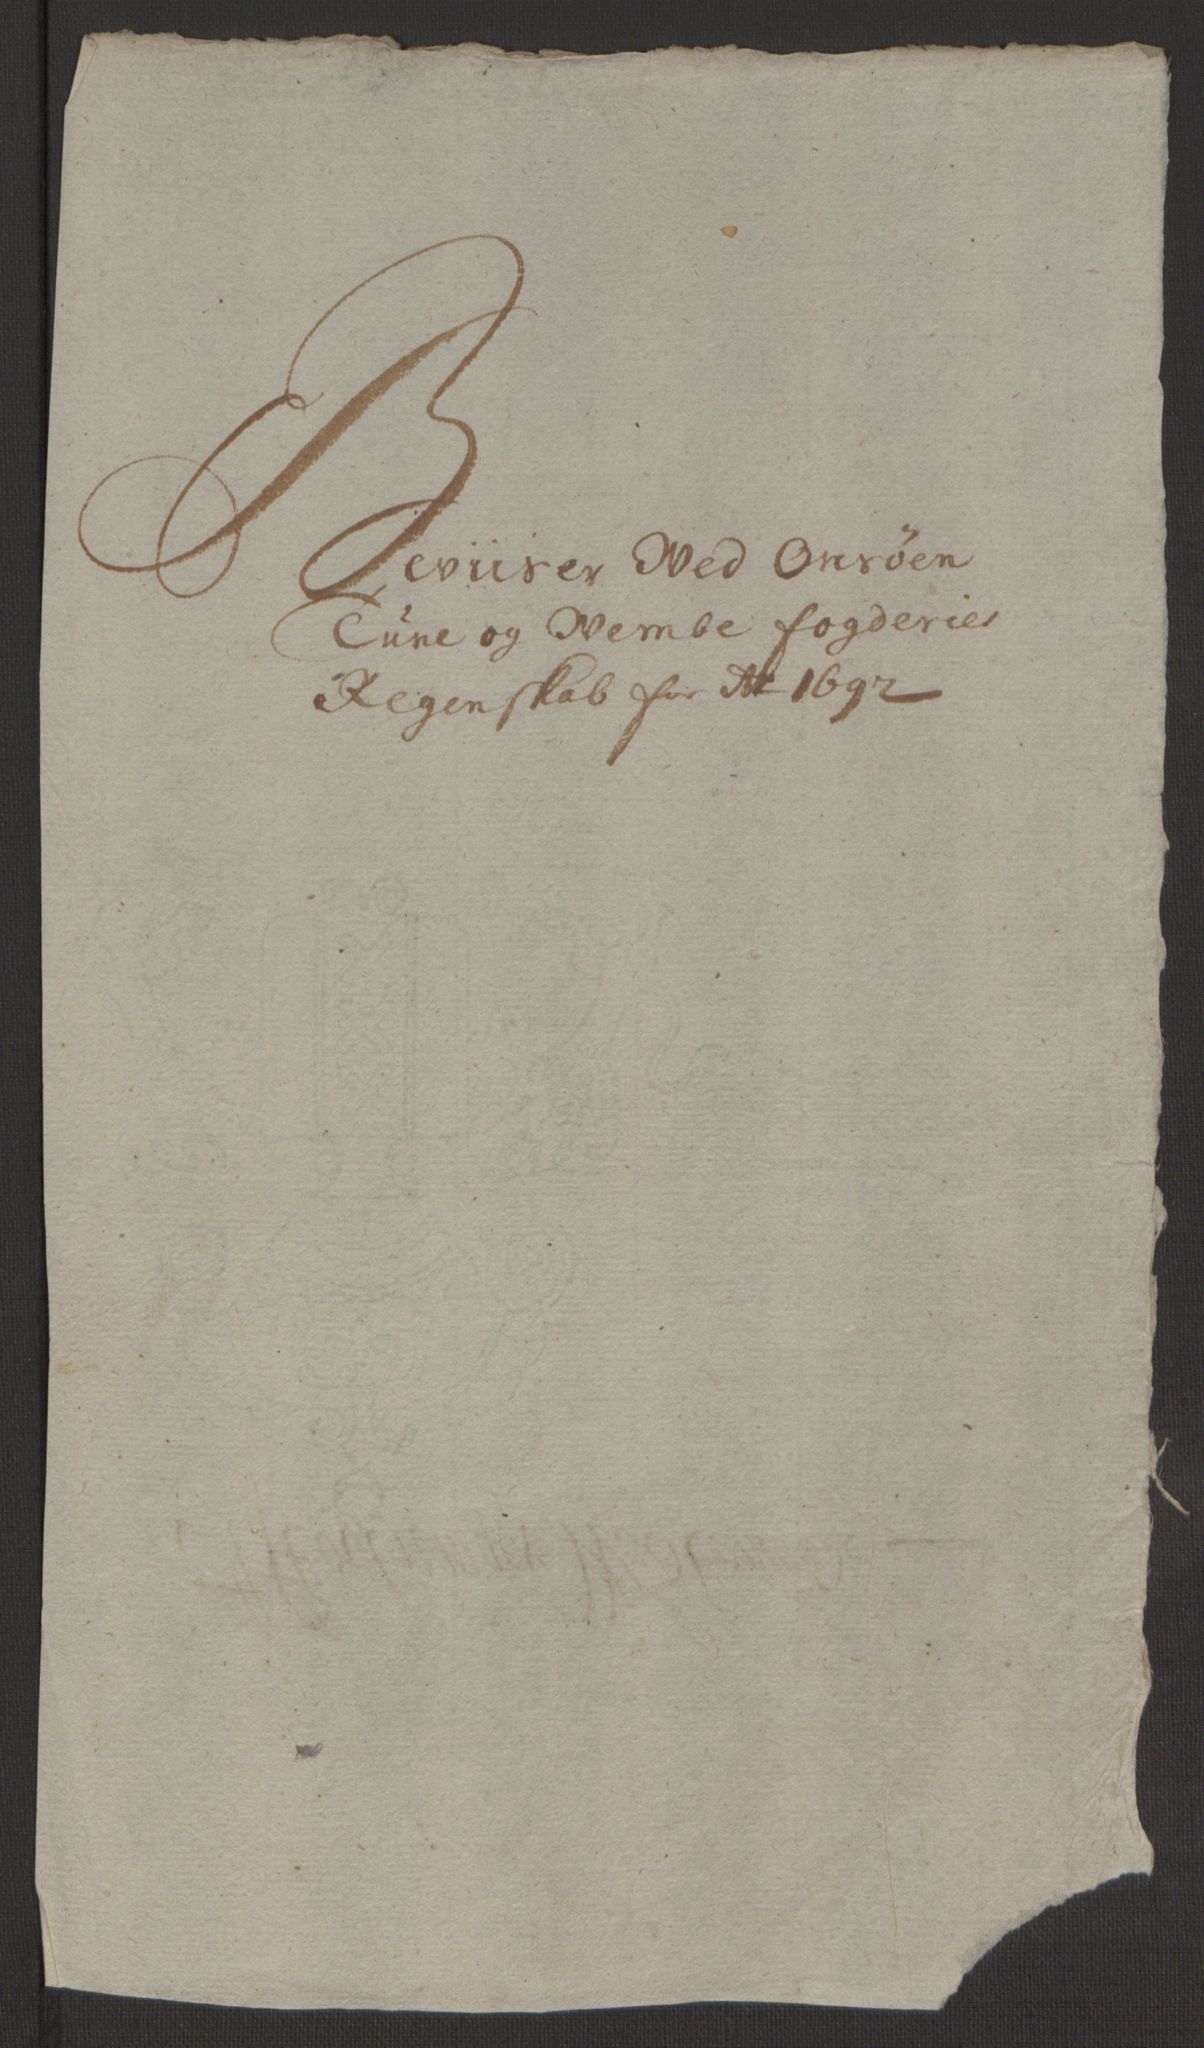 Beviiser Wed Onsøen
Tune og Wembe fogderies
Regenskab for A° 1692